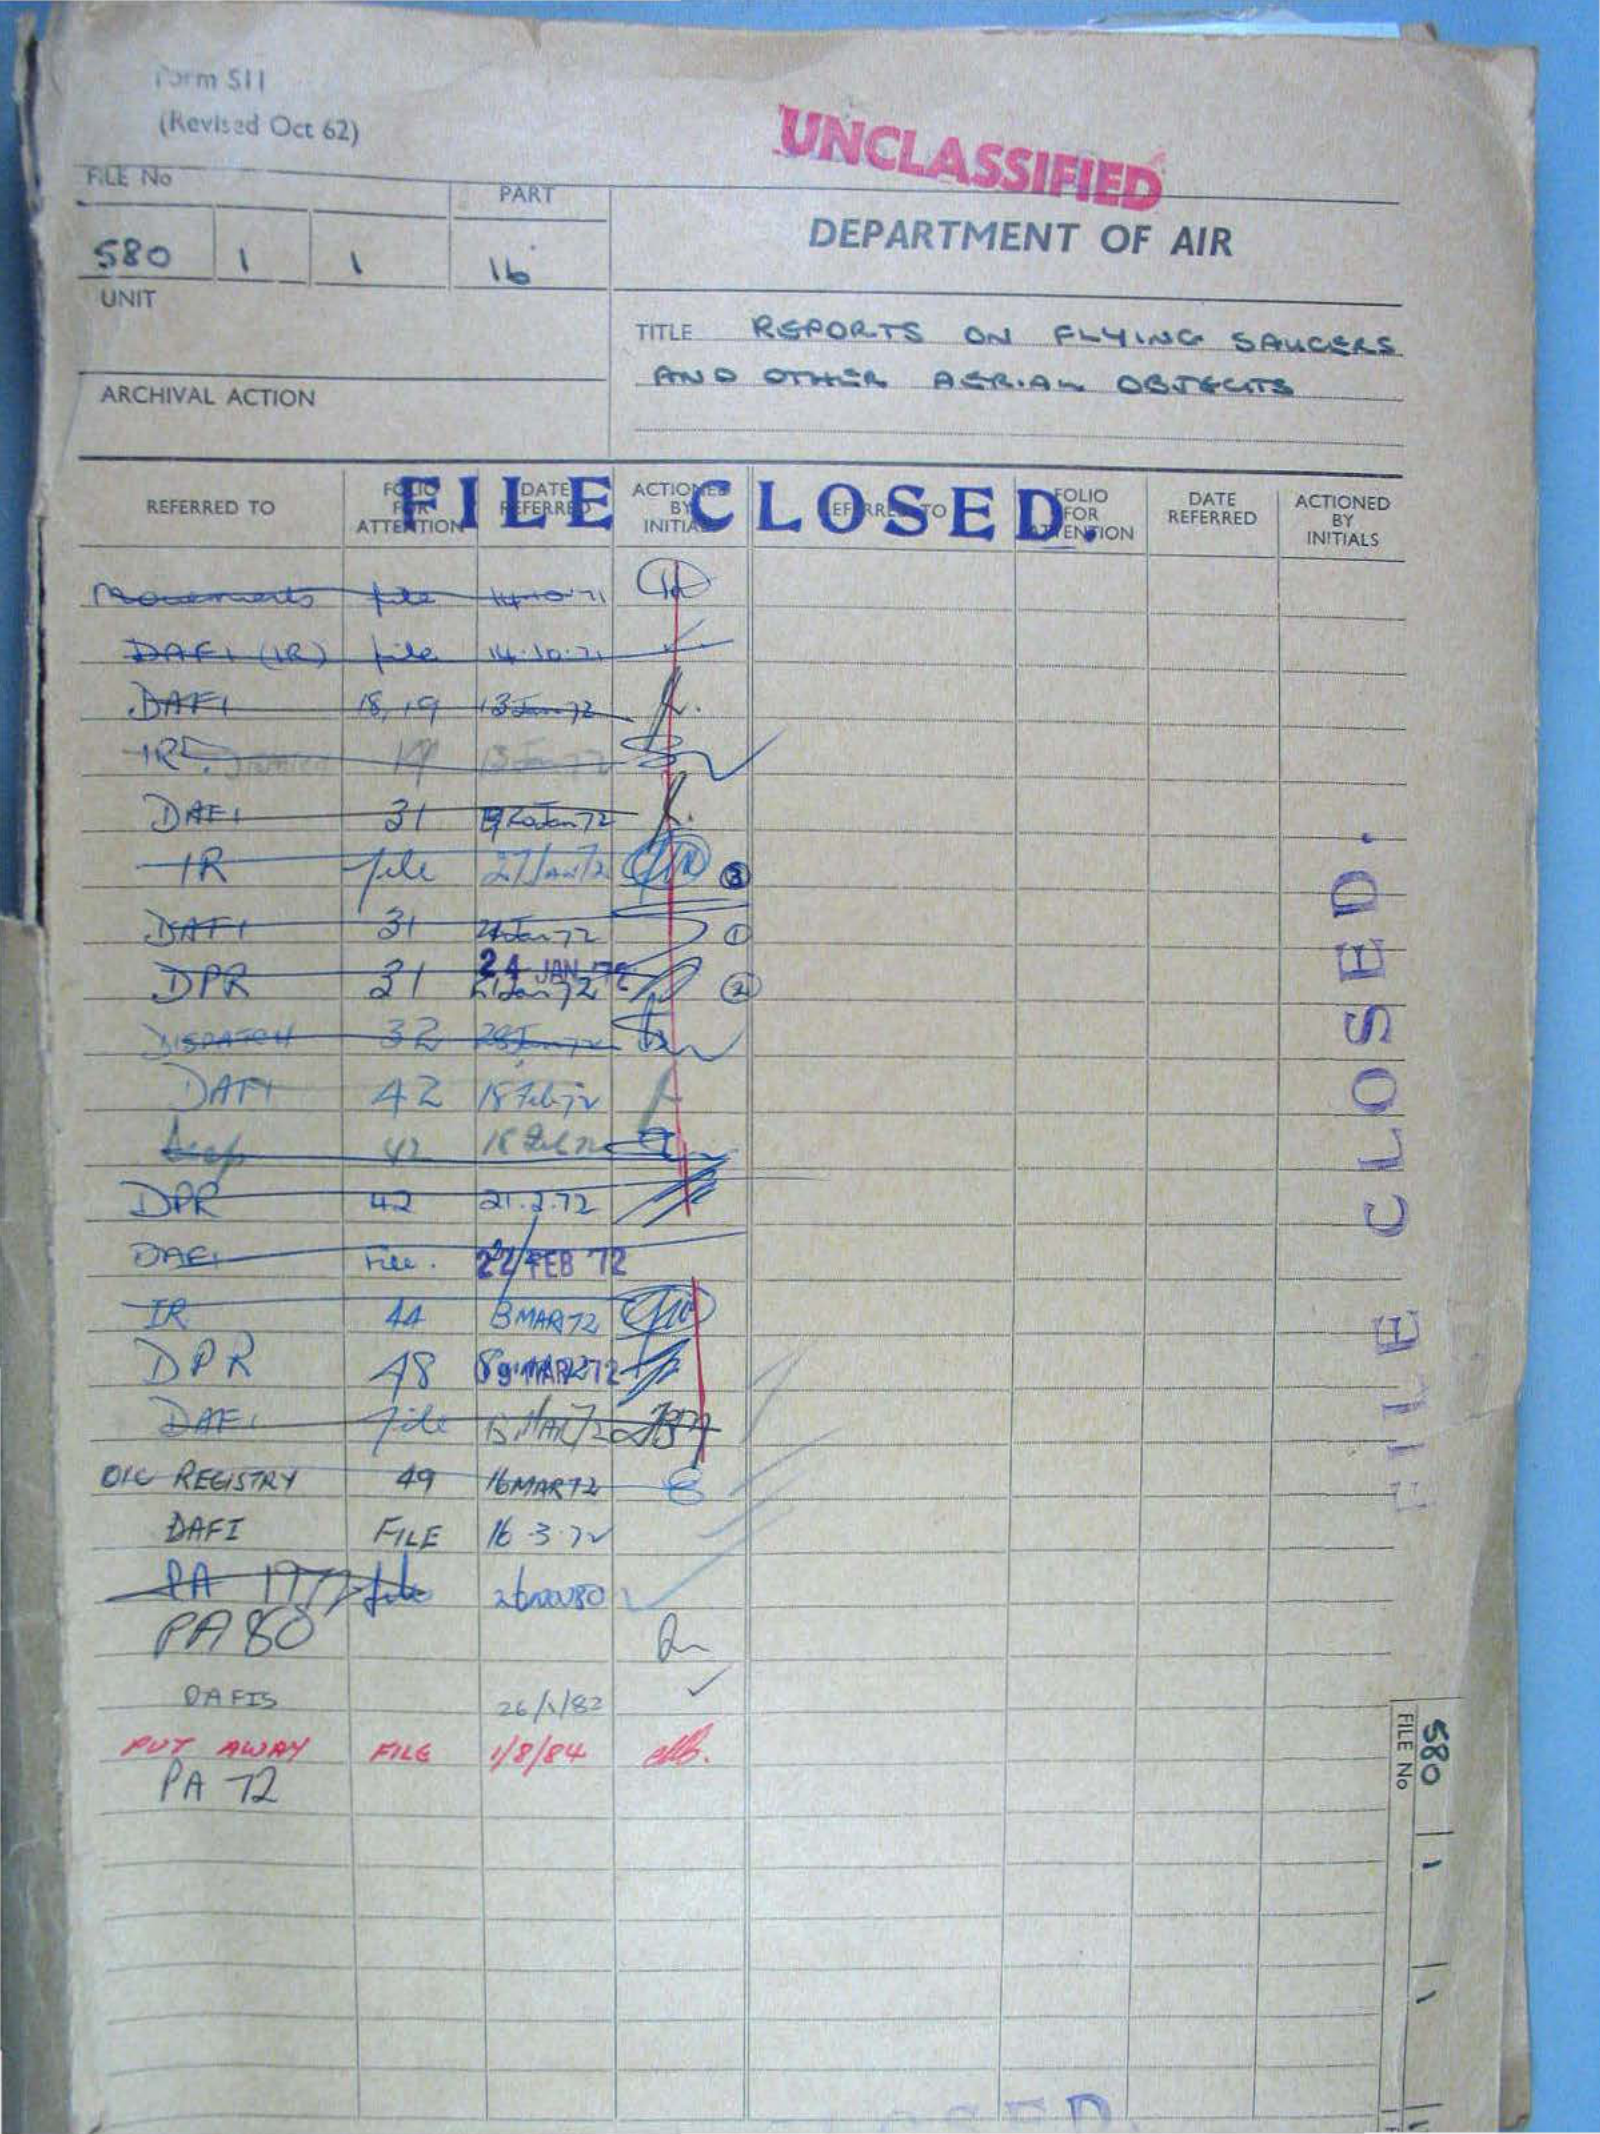 Form 511
(Revised Oct 62)
UNCLASSIFIED
FILE No
PART
580 1 1 16
DEPARTMENT OF AIR
UNIT
TITLE REPORTS ON FLYING SAUCERS
AND OTHER AERIAL OBJECTS
ARCHIVAL ACTION
FILE CLOSED.
REFERRED TO FOLIO FOR ATTENTION DATE REFERRED ACTIONED BY INITIALS REFERRED TO FOLIO FOR ATTENTION DATE REFERRED ACTIONED BY INITIALS
Movements file 14.10.71
DAFI (IR) file 14.10.71
DAFI 18, 19 13 Jan 72
IR 19 13 Jan 72
DAFI 31 20 Jan 72
IR file 27 Jan 72 3
DAFI 31 21 Jan 72 1
DPR 31 24 JAN 72 21 Jan 72 2
DISPATCH 32 28 Jan 72
DAFI 42 18 Feb 72
42 18 Feb 72
DPR 42 21.2.72
DAFI File. 22 FEB 72
IR 44 8 MAR 72
DPR 48 MAR 72
DAFI file 13 MAR 72
OIC REGISTRY 49 16 MAR 72
DAFI FILE 16.3.72
PA 1972 file 26 NOV 80
PA 80
DAFIS 26/1/82
PUT AWAY FILE 1/8/84
PA 72
FILE CLOSED.
580 1 1
FILE No